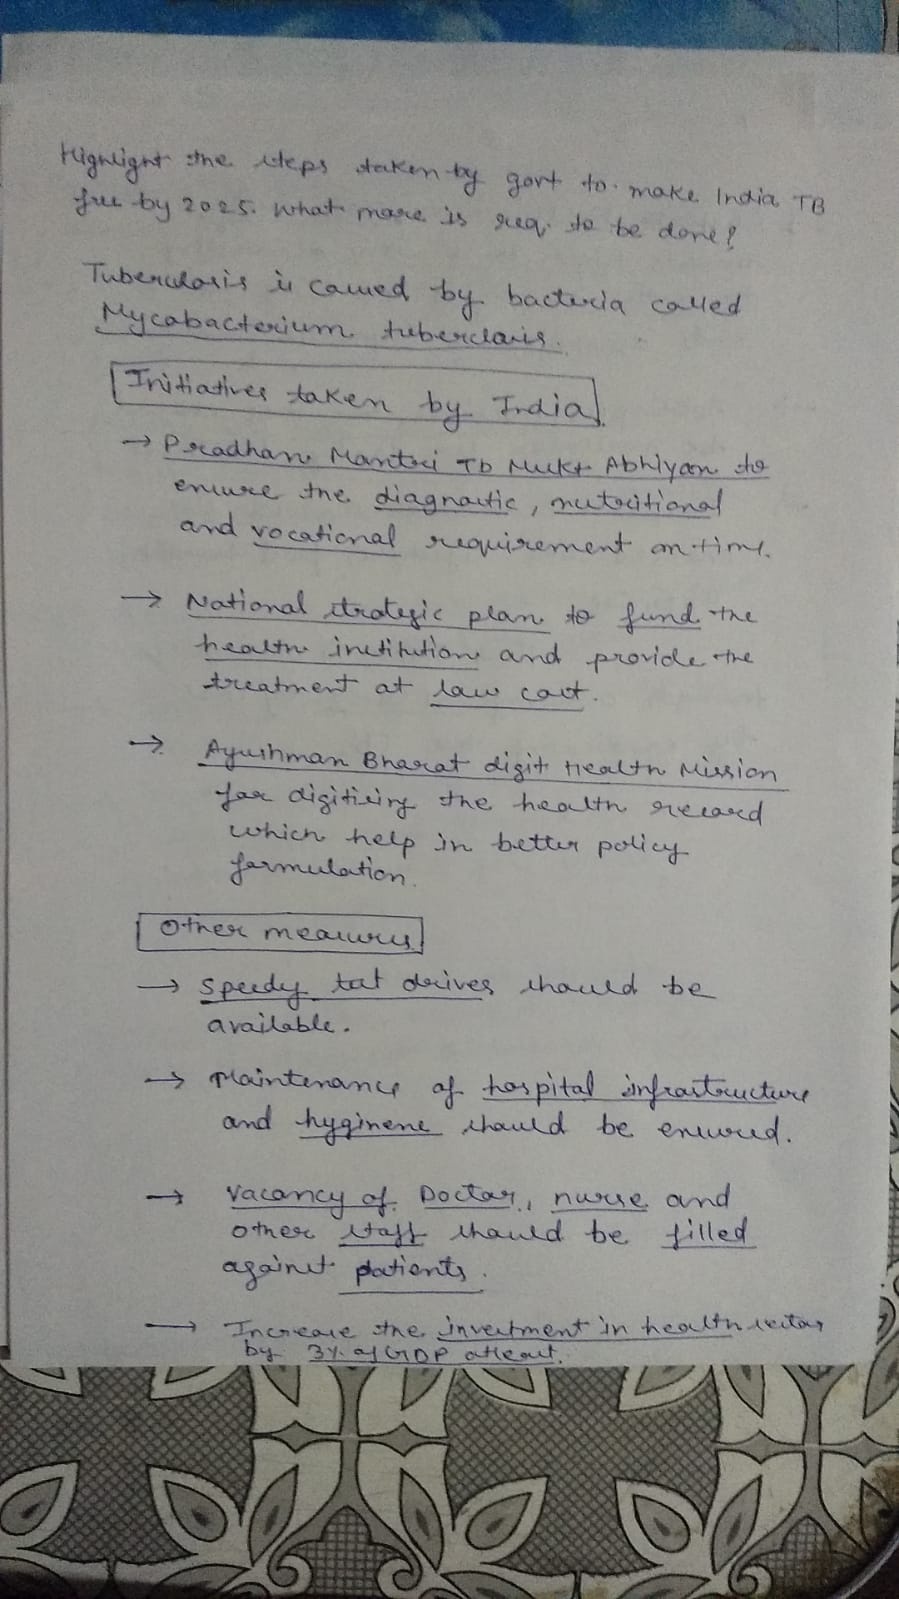 Highlight the steps taken by govt to make India TB
free by 2025. What more is req. to be done?
Tuberculosis is caused by bacteria called
Mycobacterium tuberclosis.
Initiatives taken by India
→ Pradhan Mantri Tb Mukt Abhiyan to
ensure the diagnostic, nutritional
and vocational requirement on time.
→ National strategic plan to fund the
health institution and provide the
treatment at low cost.
→ Ayushman Bharat digit Health Mission
for digitising the health record
which help in better policy
formulation.
Other measures
→ Speedy test drives should be
available.
→ Maintenance of hospital infrastructure
and hyginene should be ensured.
→ Vacancy of Doctor, nurse and
other staff should be filled
against patients.
→ Increase the investment in health sector
by 3% of GDP atleast.